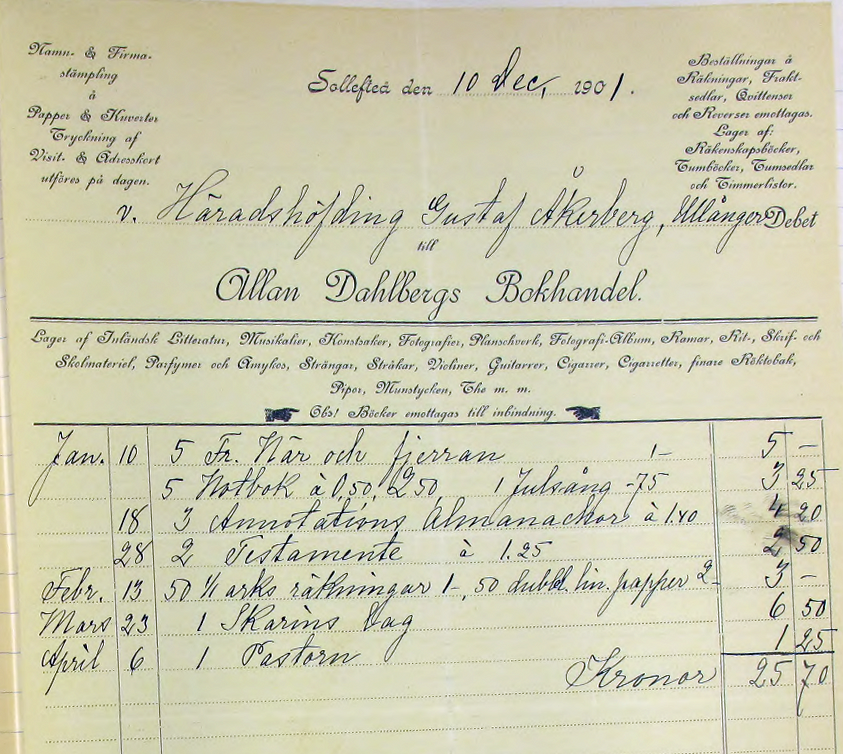 Namn- & Firma-
stämpling
å
Papper & Kuvertor
Tryckning af
Visit- & Adresskort
utföres på dagen.
Sollefteå den 10 Dec, 1901.
Beställningar å
Räkningar, Frakt-
sedlar, Qvittenser
och Reverser emottagas.
Lager af:
Räkenskapsböcker,
Tumböcker, Tumsedlar
och Timmerlistor.
v. Häradshöfding Gustaf Åkerberg, Ullånger Debet
till
Allan Dahlbergs Bokhandel.
Lager af Inländsk Litteratur, Musikalier, Konstsaker, Fotografier, Planschverk, Fotografi-Album, Ramar, Rit-, Skrif- och
Skolmateriel, Parfymer och Amykos, Strängar, Stråkar, Violiner, Guitarrer, Cigarrer, Cigarretter, finare Röktobak,
Pipor, Munstycken, The m. m.
Obs! Böcker emottagas till inbindning.
Jan. 10 5 Fr. När och fjerran 1- 5 -
5 Notbok à 0,50, 2,50, 1 Julsång -75 3 25
18 3 Annotations Almanackor à 1.40 4 20
28 2 Testamente à 1.25 2 50
Febr. 13 50 1/1 arks räkningar 1-, 50 dubbl. lin. papper 2- 3 -
Mars 23 1 Skarins Lag 6 50
April 6 1 Pastorn 1 25
Kronor 25 70